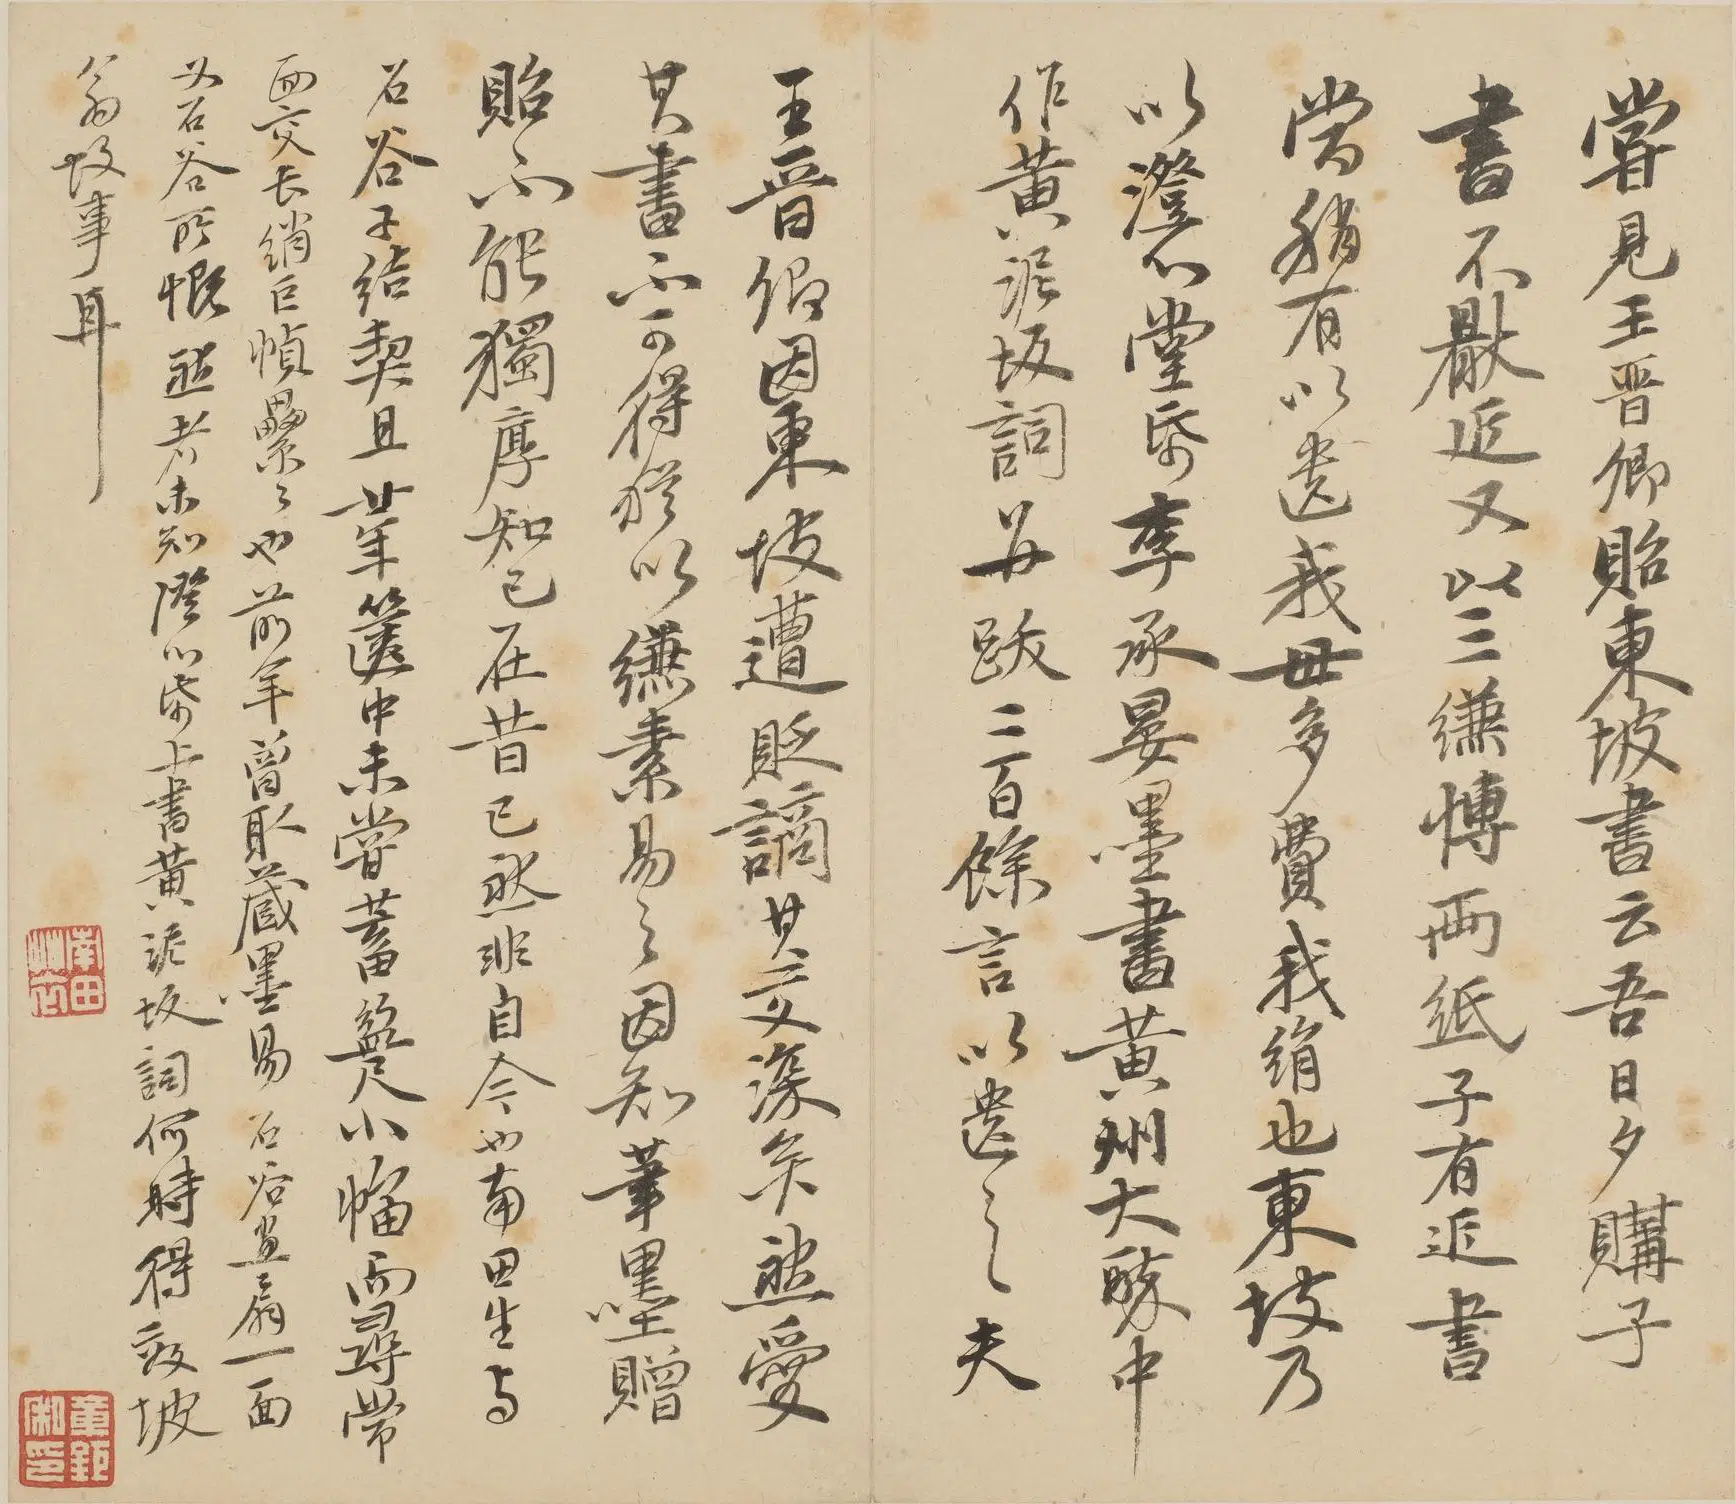 嘗見王晉卿貽東坡書云吾日夕購子
書不厭近又以三縑博兩紙子有近書
當稍有以遺我毋多費我絹也東坡乃
以澄心堂帋李承晏墨書黃州大醉中
作黃泥坂詞并跋二百餘言以遺之夫
王晉伯因東坡遭貶謫其交深矣然愛
其書不可得猶以縑素易之因知筆墨贈
貽不能獨厚知己在昔已然非自今也南田生与
石谷子結契且廿年篋中未嘗蓄盈尺小幅而尋常
面交長綃巨幀纍纍也前年曾取藏墨易石谷畫扇一面
又石谷所慨然者未知澄心帋上書黃泥坂詞何時得效坡
翁故事耳
南田
草衣